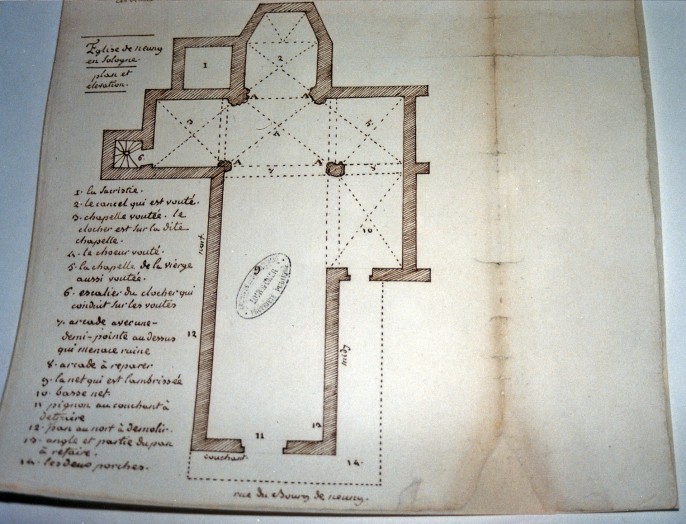 Eglise de neung
en Sologne.
plan et
elevation.
1
2
3
4
5
6
7
8
9
10
12
nort.
midy
13
11
couchant
14.
1. la sacristie.
2. le cancel qui est vouté.
3. chapelle voutée. le
clocher est sur la dite
chapelle.
4. le choeur vouté.
5. la chapelle de la vierge
aussi voutée.
6. escalier du clocher qui
conduit sur les voutes
7. arcade avec une
demi-pointe au dessus
qui menace ruine
8. arcade à reparer
9. la nef qui est lambrissée
10. basse nef.
11 pignon au couchant à
detruire
12. pan au nort à demolir.
13. angle et partie du pan
à refaire.
14. les deux porches.
rue du Bourg de neung.